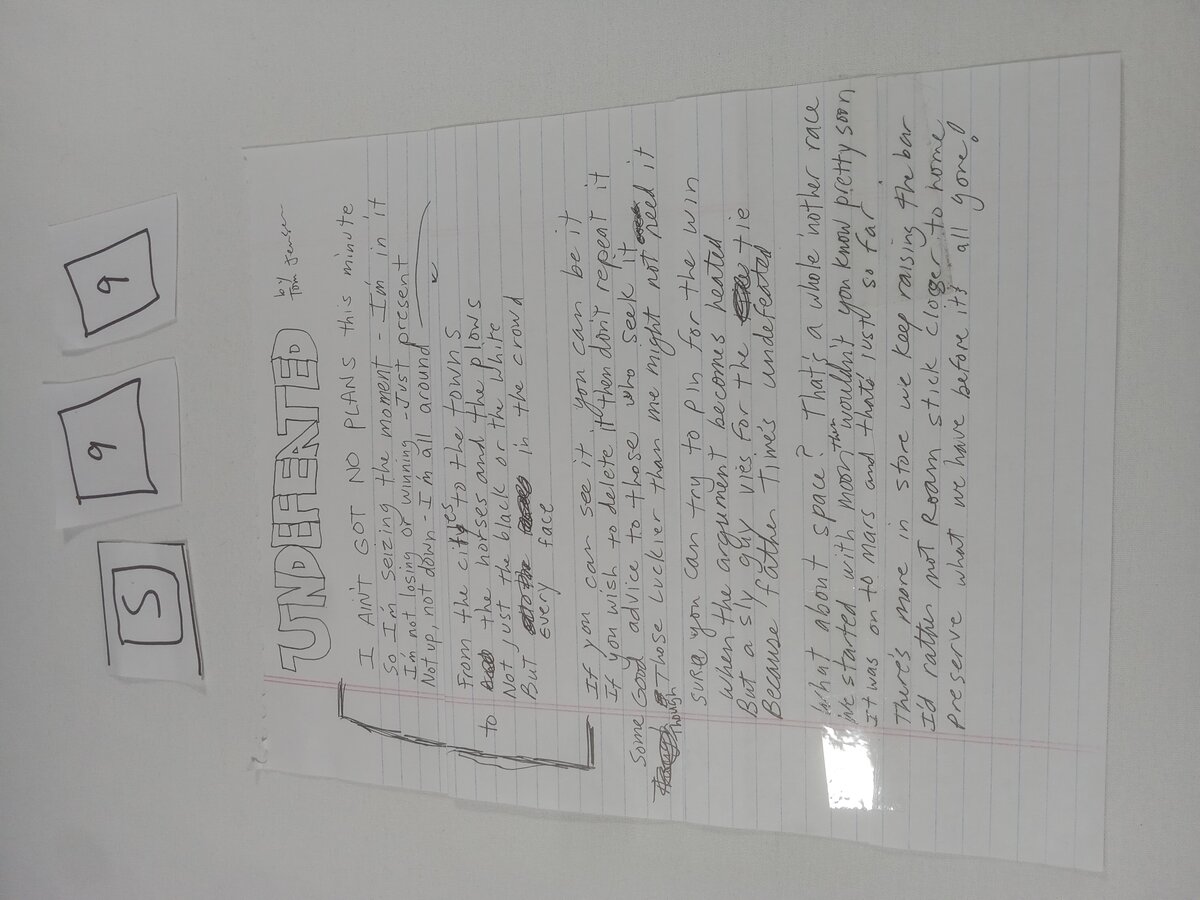 S
9
9
UNDEFEATED
by
Tom Jensen
I AIN'T GOT NO PLANS this minute
So I'm seizing the moment - I'm in it
I'm not losing or winning - Just present
Not up, not down - I'm all around
From the cities to the towns
to the horses and the plows
Not just the black or the white
But in the crowd
Every face
If you can see it you can be it
If you wish to delete it then don't repeat it
Some Good advice to those who seek it
Though Those luckier than me might not need it
Sure you can try to pin for the win
When the argument becomes heated
But a sly guy vies for the tie
Because father Time's undefeated
What about space? That's a whole 'nother race
We started with moon then wouldn't you know pretty soon
It was on to mars and that's just so far
There's more in store we keep raising the bar
I'd rather not Roam stick closer to home
Preserve what we have before it's all gone!